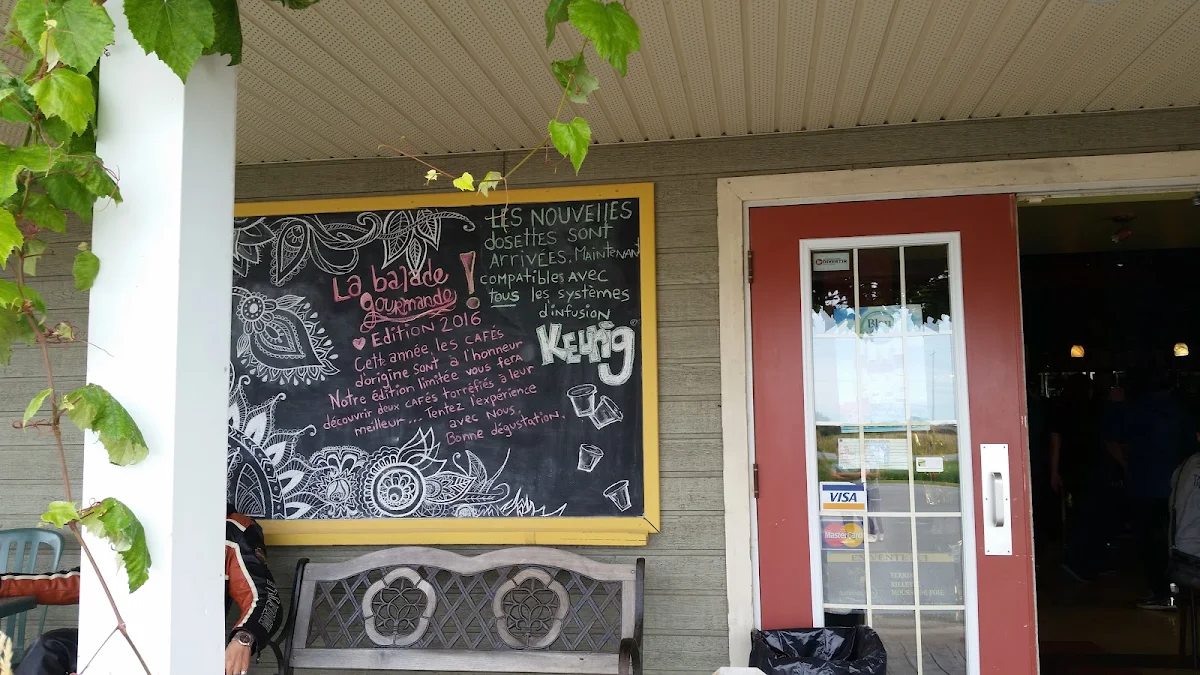 La balade
gourmande !
Edition 2016
Cette année, les cafés
d'origine sont à l'honneur
Notre édition limitée vous fera
découvrir deux cafés torréfiés à leur
meilleur... Tentez l'expérience
avec nous.
Bonne dégustation.
LES NOUVEllES
dosettes sont
arrivées. Maintenant
compatibles avec
tous les systèmes
d'infusion
Keurig
VISA
MasterCard